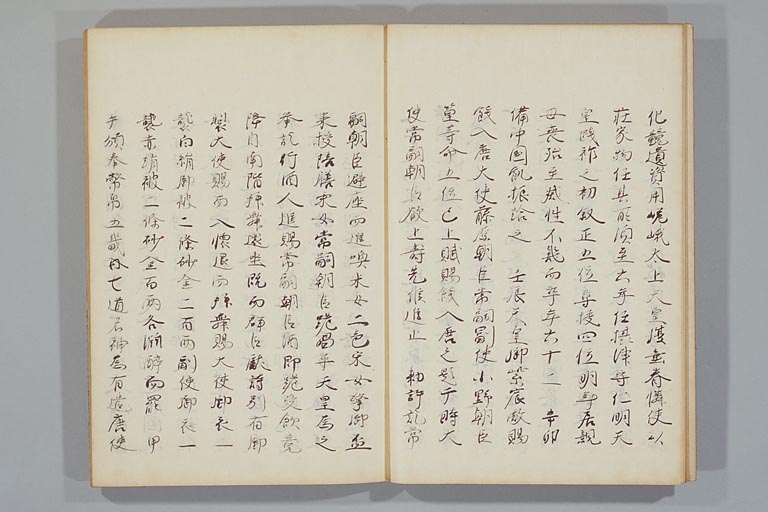 化鏡遺資用嵯峨太上天皇淺無眷憐使以
莊家物任其所須至六年任攝津守仁明天
皇践祚之初叙正五位尋授四位明年居親
母喪殆至滅性不幾而卒年六十二　辛卯
備中国飢振給之　壬辰天皇御紫宸殿賜
餞入唐大使藤原朝臣常嗣副使小野朝臣
篁等命五位已上賦賜餞入唐之題于時大
使常嗣朝臣欲上壽先候進止　勅許訖常
嗣朝臣避座而進喚采女二色采女擎御盃
来授陪膳采女常嗣朝臣跪唱平天皇為之
挙訖行酒人進賜常嗣朝臣酒即跪受飲竟
降自南階拝舞還坐既而群臣献詩別有御
製大使賜而入懐退而拝舞賜大使御衣一
襲白絹御被二條砂金二百両副使御衣一
襲赤絹被二條砂金百両各淵酔而罷　甲
午頒奉幣帛五畿内七道名神為有遣唐使